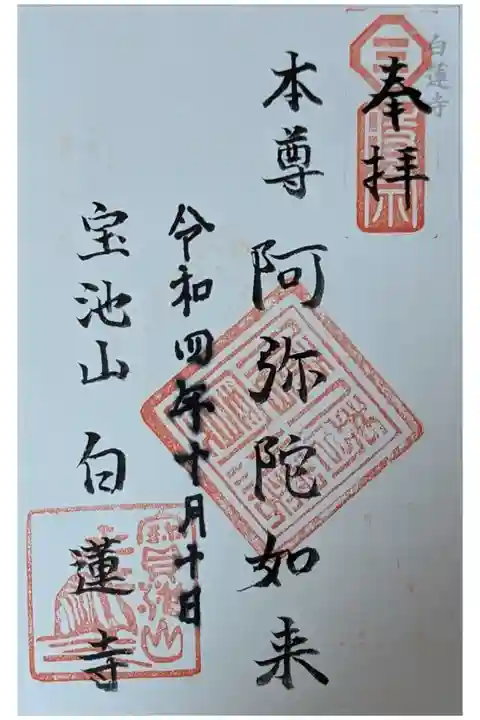 白蓮寺
奉拝
本尊 阿弥陀如来
令和四年十月十日
宝池山 白蓮寺